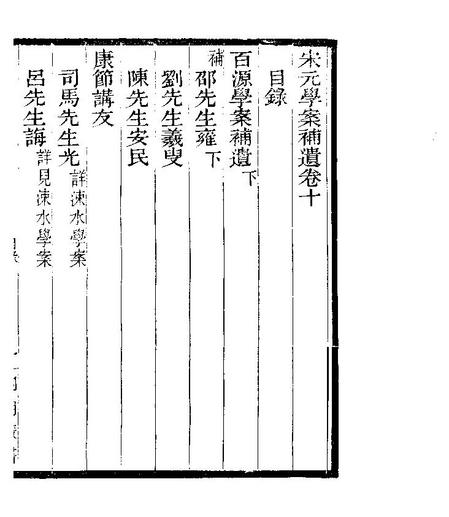 宋元學案補遺卷十
目錄
百源學案補遺下
補邵先生雍下
劉先生羲叟
陳先生安民
康節講友
司馬先生光詳涑水學案
呂先生誨詳見涑水學案